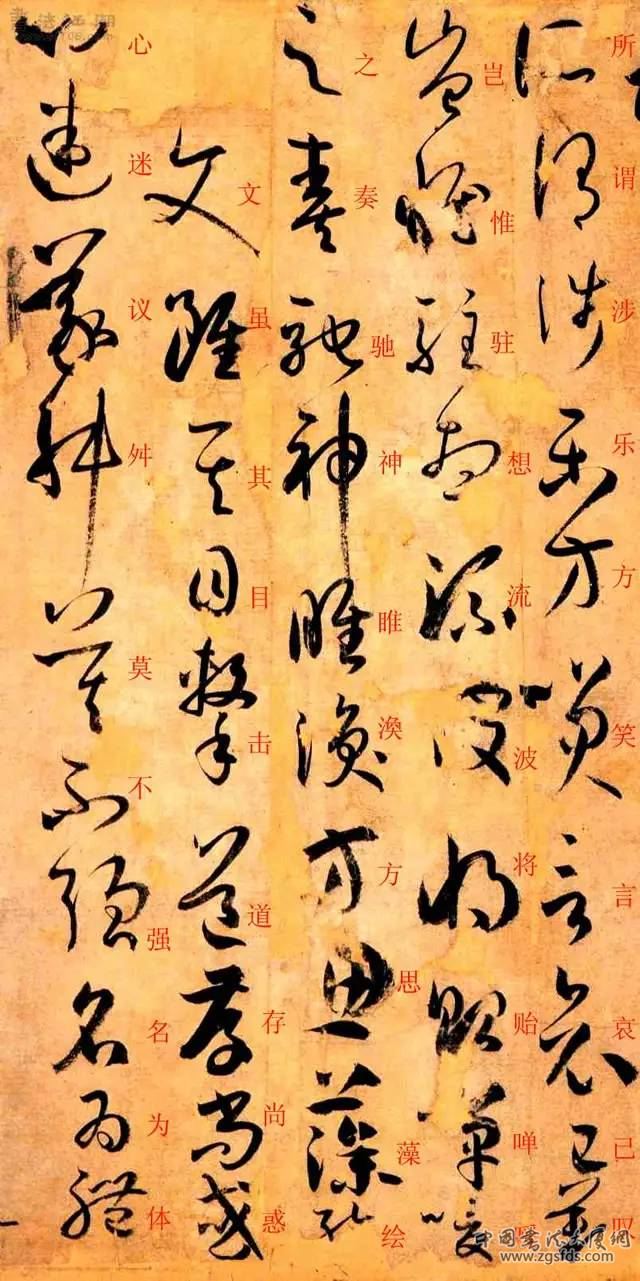 所谓涉乐方笑言哀已叹
岂惟驻想流波将贻啴喛
之奏驰神睢涣方思藻绘
文虽其目击道存尚惑
心迷议舛莫不强名为体
书法江湖
中国书法大厦网
www.zgsfds.com